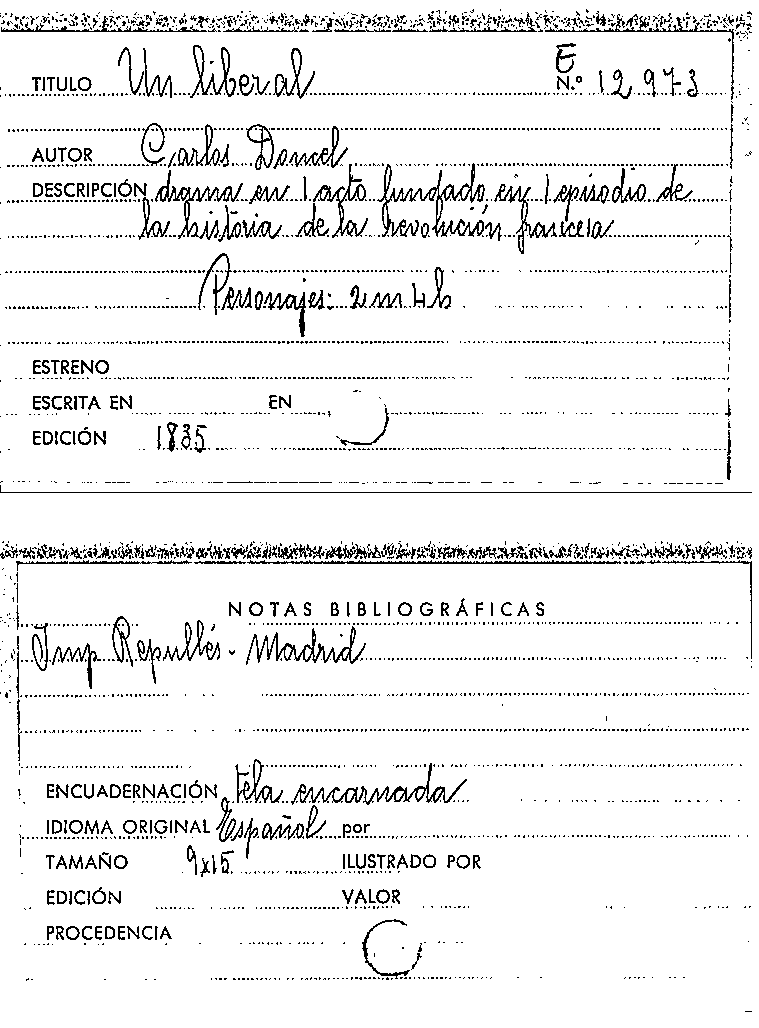 E
TITULO Un liberal N.º 12973
AUTOR Carlos Doncel
DESCRIPCIÓN drama en 1 acto fundado en 1 episodio de
la historia de la revolución francesa
Personajes: 2 m 4 h
ESTRENO
ESCRITA EN EN
EDICIÓN 1835
NOTAS BIBLIOGRÁFICAS
Imp Repullés - Madrid
ENCUADERNACIÓN tela encarnada
IDIOMA ORIGINAL Español por
TAMAÑO 9x15 ILUSTRADO POR
EDICIÓN VALOR
PROCEDENCIA